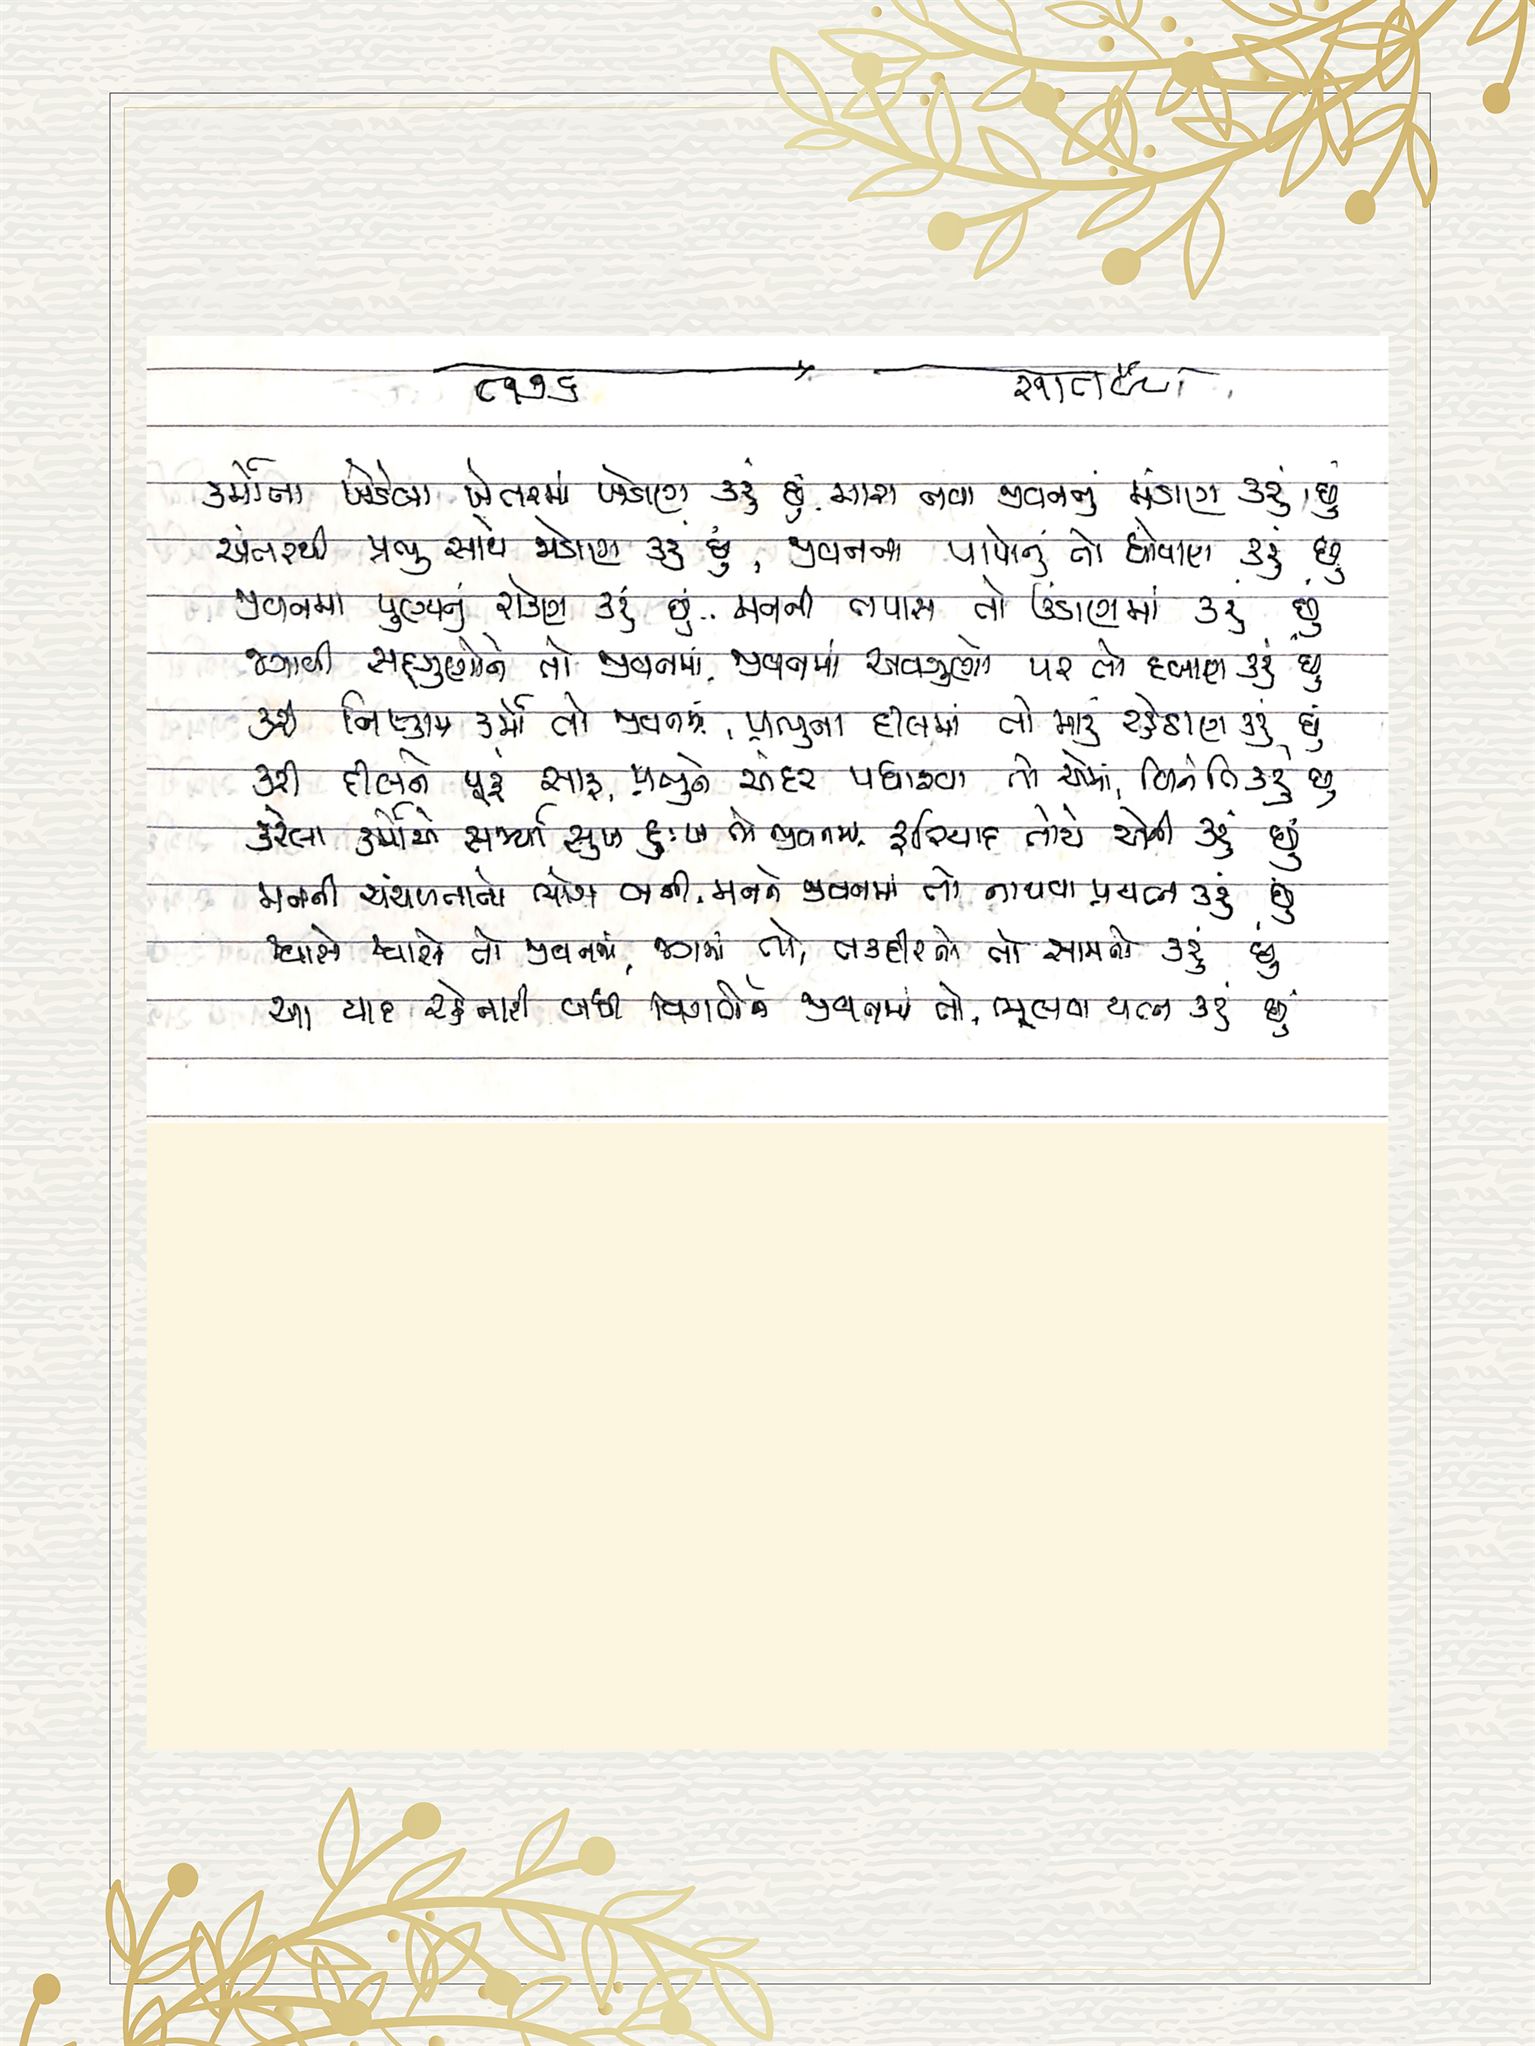 ૮૧૭૬
કર્મોના ખેડેલા ખેતરમાં ખેડાણ કરું છું. મારા નવા જીવનનું મંડાણ કરું છું
અંતરથી પ્રભુ સાથે જોડાણ કરું છું, જીવનના પાપોનું તો ધોવાણ કરું છું
જીવનમાં પુણ્યનું રોકાણ કરું છું.. મનની તપાસ તો ઊંડાણમાં કરું છું
જગાવી સદ્ગુણોને તો જીવનમાં. જીવનમાં અવગુણો પર તો દબાણ કરું છું
કરી નિષ્કામ કર્મો તો જીવનમાં, પ્રભુના દીલમાં તો મારું રહેઠાણ કરું છું
કરી દીલને પૂરું સાફ, પ્રભુને અંદર પધારવા તો એમાં, વિનંતિ કરું છું
કરેલા કર્મોએ સર્જ્યા સુખ દુઃખ તો જીવનમાં. ફરિયાદ તોયે એની કરું છું
મનની ચંચળતાનો ભોગ બની. મનને જીવનમાં તો નાથવા પ્રયત્ન કરું છું
શ્વાસે શ્વાસે તો જીવનમાં, જગમાં તો, તકદીરનો તો સામનો કરું છું
આ યાદ રહેનારી બધી વિગતોને જીવનમાં તો, ભૂલવા યત્ન કરું છું